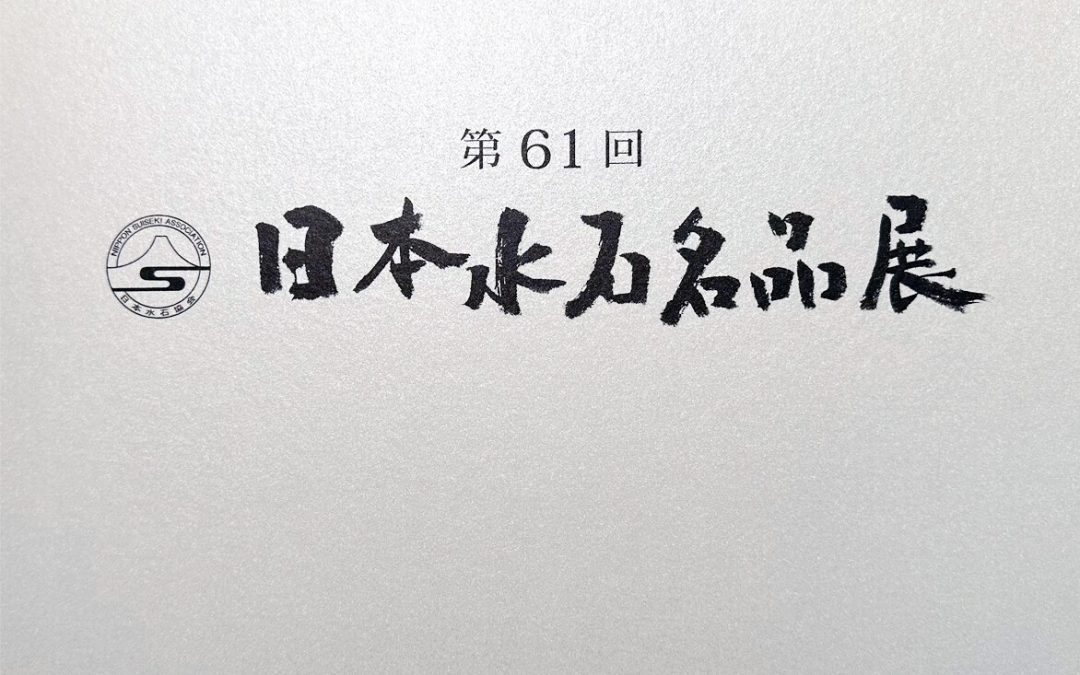 第61回
日本水石名品展
NIPPON SUISEKI ASSOCIATION
日本水石協会